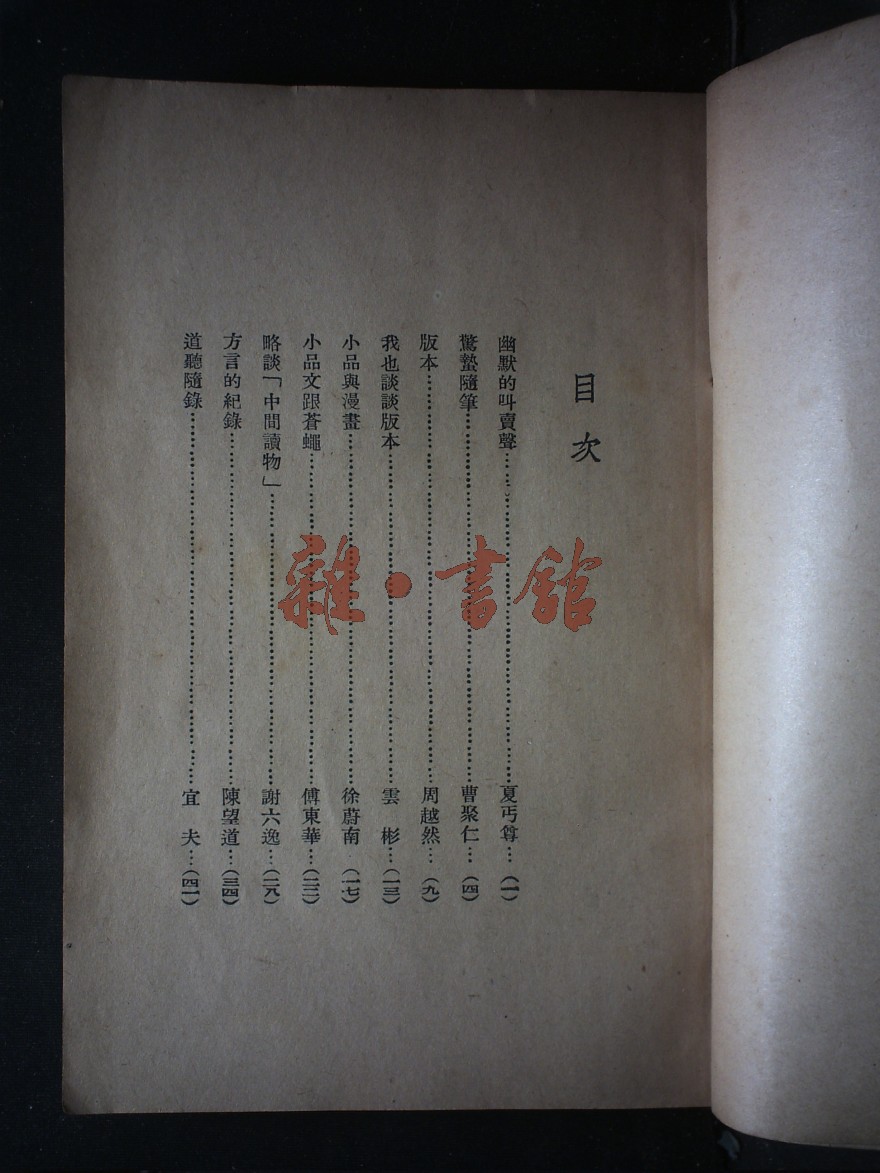 目次
幽默的叫賣聲……夏丏尊…(一)
驚蟄隨筆……曹聚仁…(四)
版本……周越然…(九)
我也談談版本……雲 彬…(一三)
小品與漫畫……徐蔚南…(一七)
小品文跟蒼蠅……傅東華…(二二)
略談「中間讀物」……謝六逸…(二八)
方言的紀錄……陳望道…(三四)
道聽隨錄……宜 夫…(四一)
雜·書館